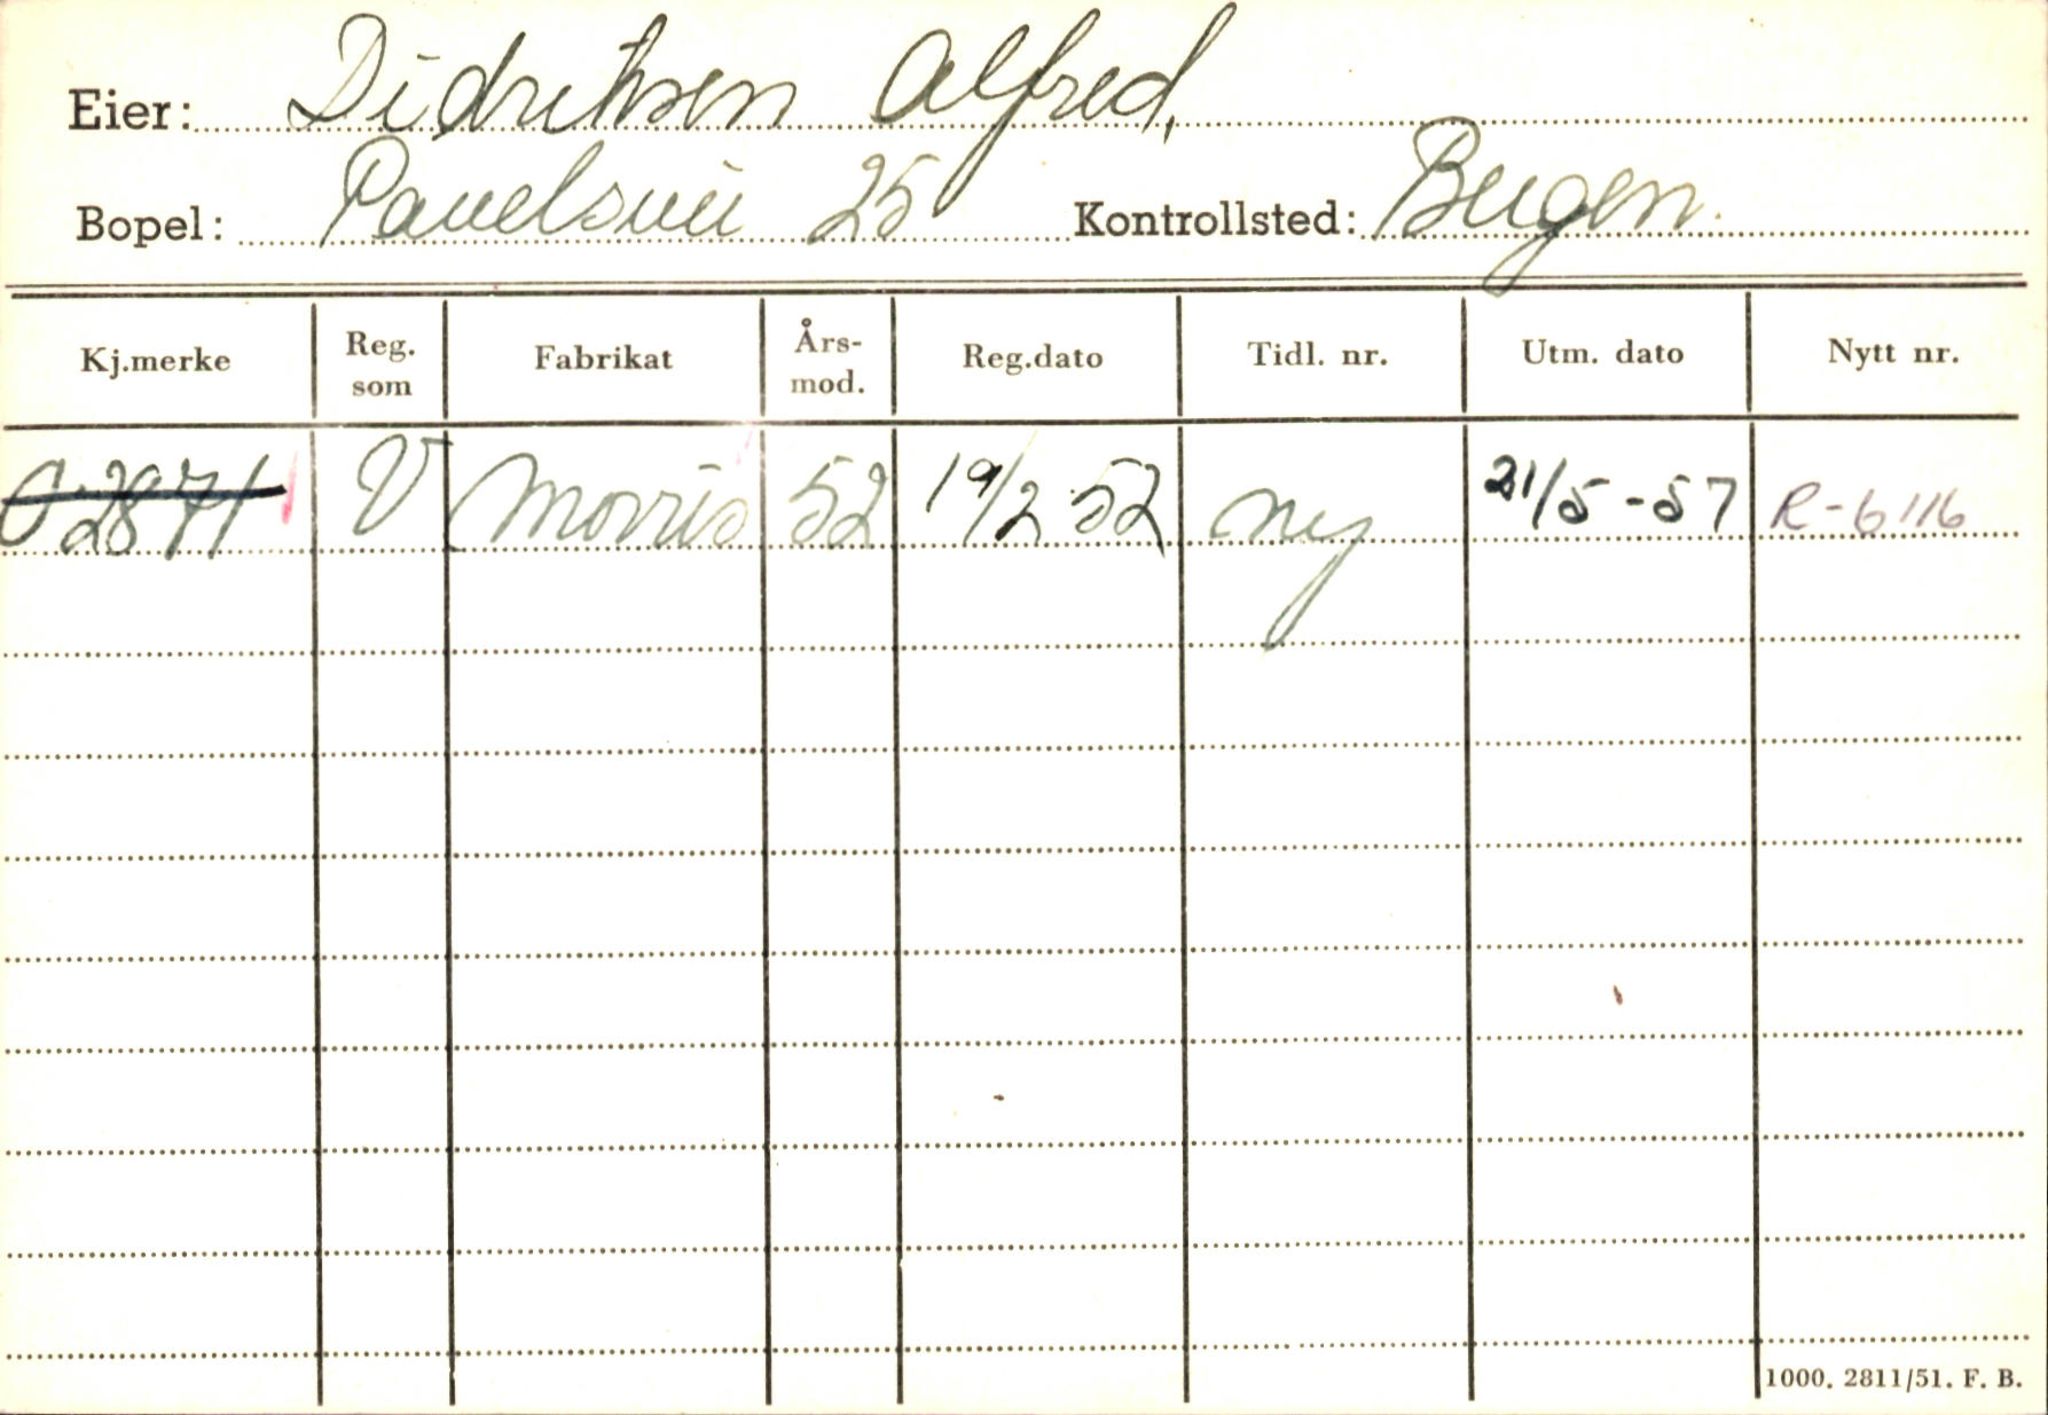 Eier: Didriksen Alfred,
Bopel: Pauelsvei 25 Kontrollsted: Bergen.
Kj.merke Reg. som Fabrikat Års-mod. Reg.dato Tidl. nr. Utm. dato Nytt nr.
O 2871 V Morris 52 19/2 52 ny 21/5-57 R-6116
1000. 2811/51. F. B.